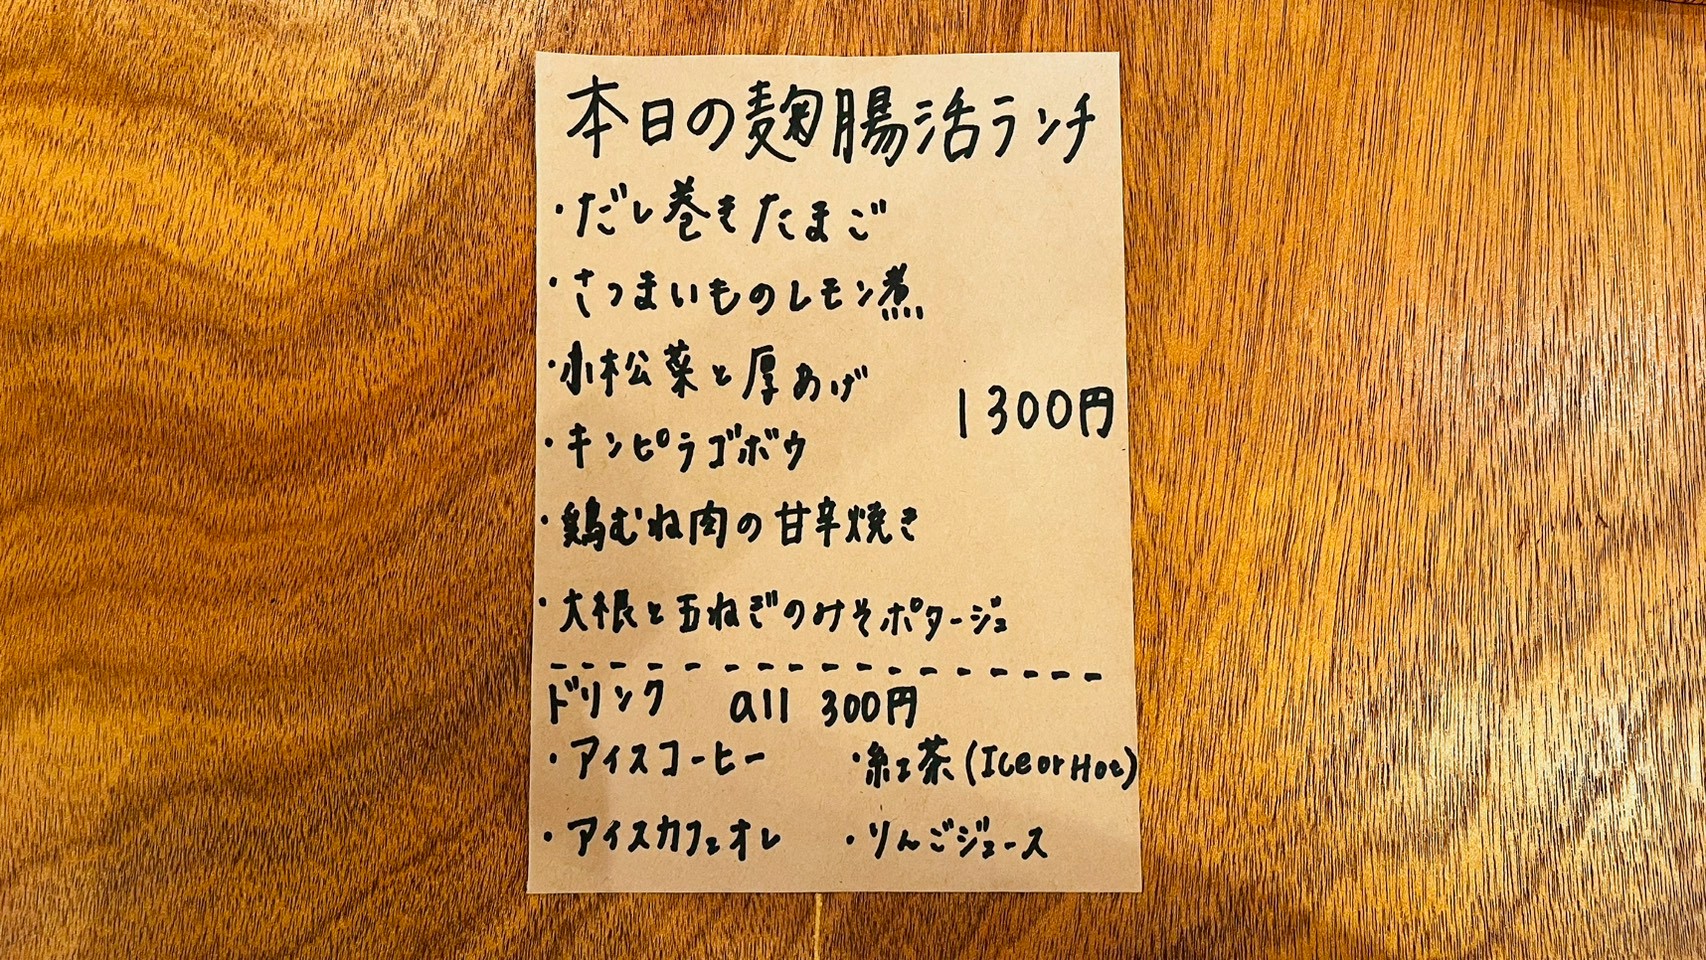 本日の麹腸活ランチ
・だし巻きたまご
・さつまいものレモン煮
・小松菜と厚あげ
1300円
・キンピラゴボウ
・鶏むね肉の甘辛焼き
・大根と玉ねぎのみそポタージュ
ドリンク all 300円
・アイスコーヒー ・紅茶(Ice or Hot)
・アイスカフェオレ ・りんごジュース